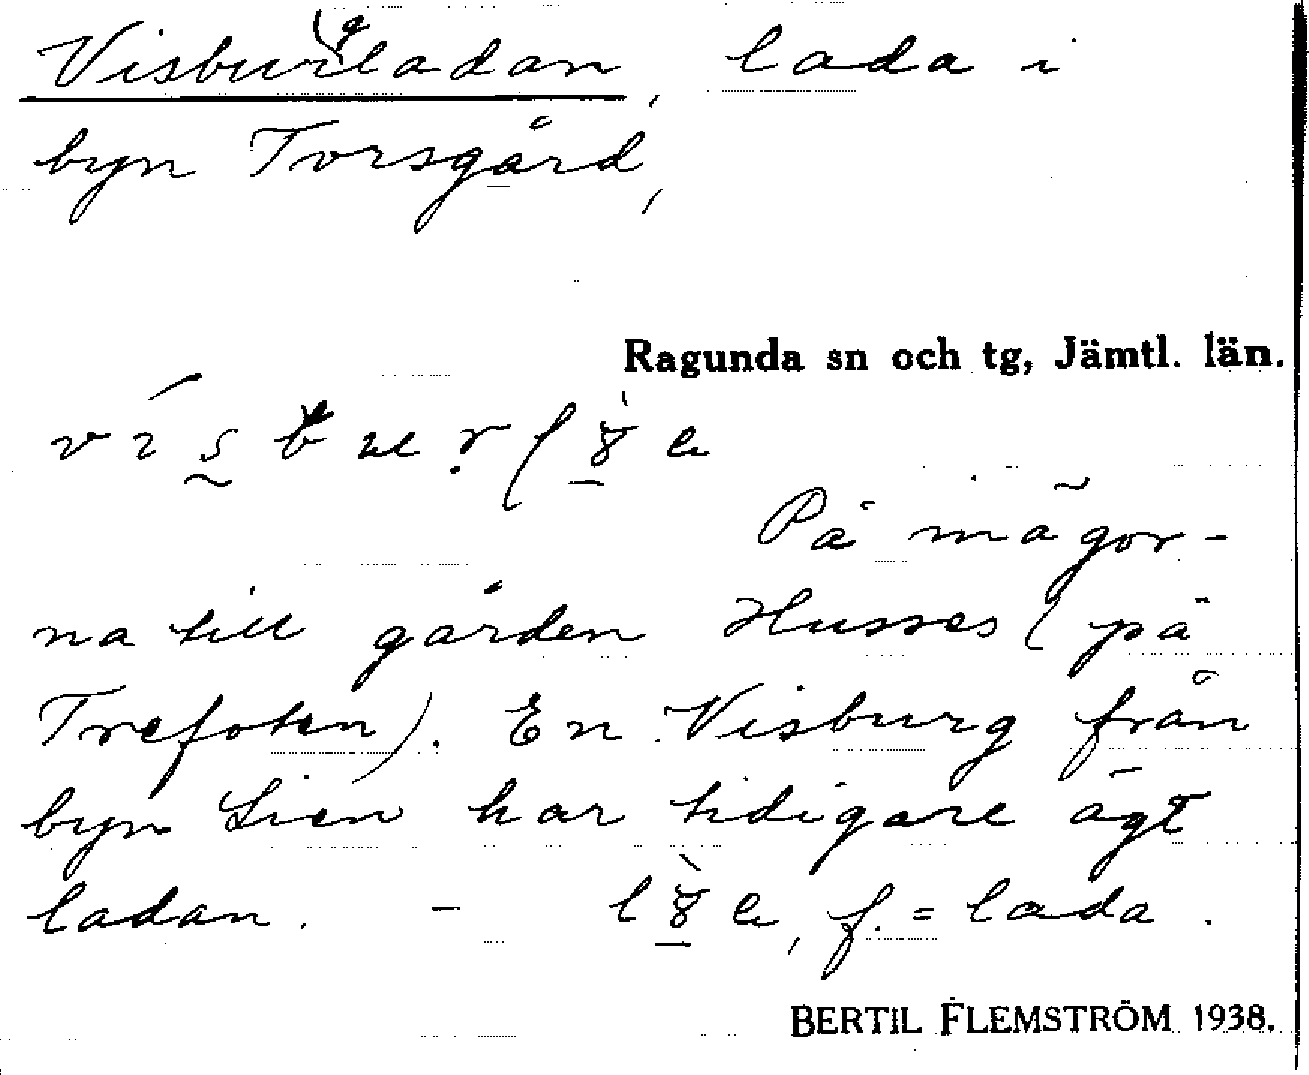 Visburgladan, lada i
byn Torsgård,
Ragunda sn och tg, Jämtl. län.
På mägor-
na till gården Husses (på
Trefoten). En Visburg från
byn Lien har tidigare ägt
ladan. - f. = lada.
BERTIL FLEMSTRÖM 1938.